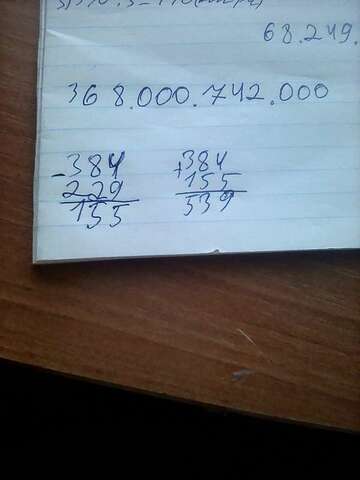 68.249.
368.000.742.000
-384 +384
229 155
155 539